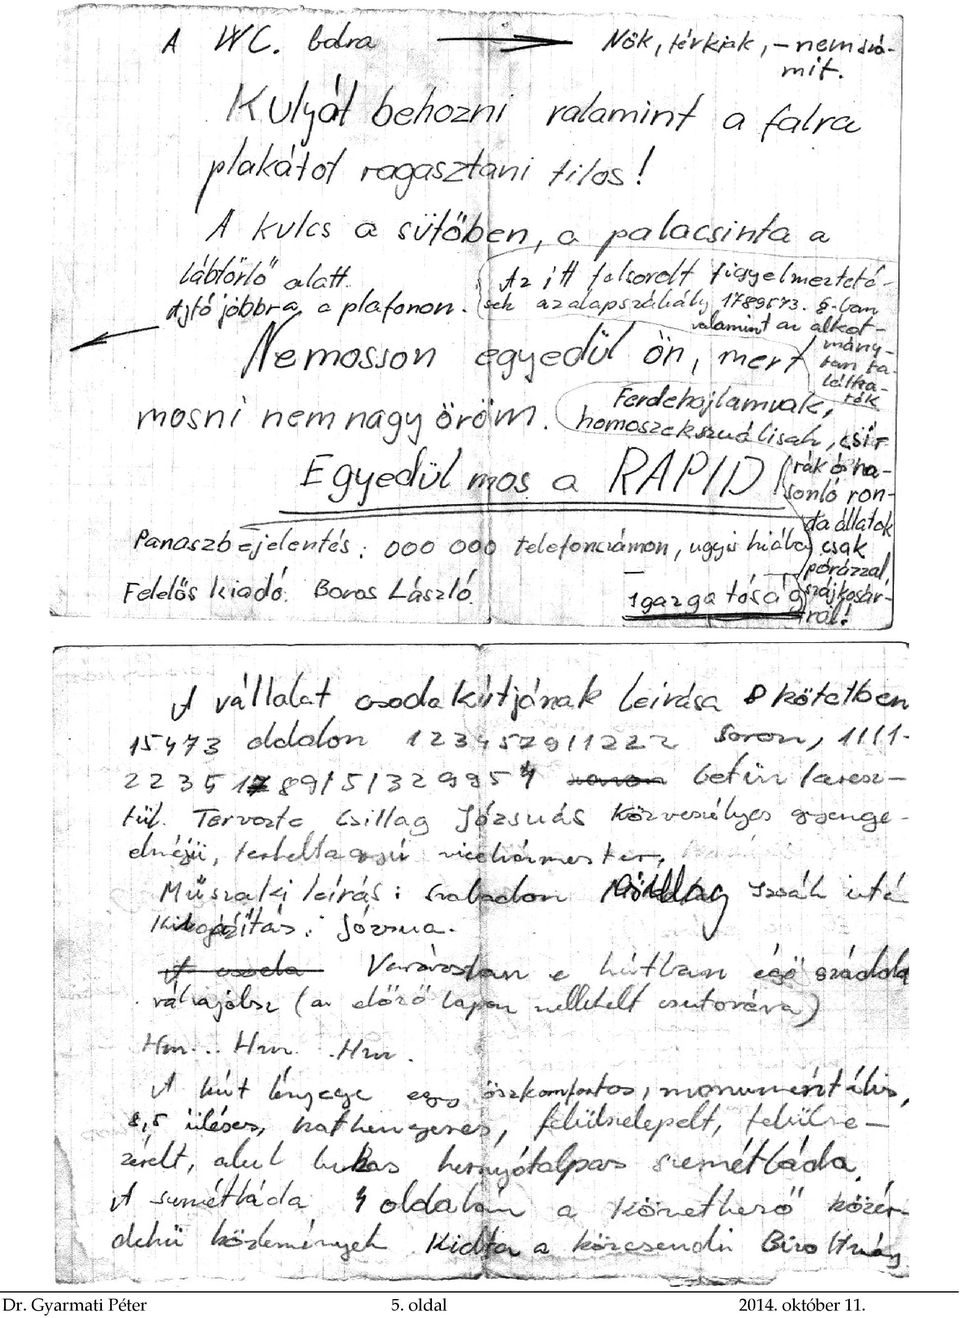 A WC. balra Nők, férfiak, – nem
mit.
Kutyát behozni valamint a falra
plakátot ragasztani tilos!
A kulcs a sütőben, a palacsinta a
lábtörlő alatt.
Az itt felsorolt figyelmezteté-
Ajtó jobbra, a plafonon.
sek az alapszabály 1789573. §.-ban
valamint az alkot-
mány-
ban ta-
lálha-
tók
Nemosson egyedül ön, mert
mosni nem nagy öröm.
Ferdehajlamuak,
homoszekszuálisak, csir-
kák és ha-
sonló ron-
da állatok
csak
pórázzal
szájkosár-
ral!
Egyedül mos a RAPID!
Panaszbejelentés: 000 000 telefonszámon, ugyis hiába
Felelős kiadó: Boros László.
Igazgatóság
A vállalat csodakútjának leírása 8 kötetben
15473 oldalon 12345291122 soron, 1111-
betün keresz-
tül. Tervezte Csillag Józsuás közveszélyes gyenge-
elméjü,
Műszaki leírás: szabadon Csillag Izsák után
Kivitelezés: Józsua.
Varázsoltan a kútban égő
ráhajolsz (az előző lapon mellékelt csutorára)
Hm... Hm... Hm.
A kút lényege egy öszkomfortos, monumentális,
8,5 üléses, hathengeres, felülszelepelt, felülve-
zérelt, alul lukas hernyótalpas szemétláda.
A szemétláda 4 oldalán a következő közér-
dekü közlemények. Kiadta a közcsendi Bizottmány
Dr. Gyarmati Péter 5. oldal 2014. október 11.